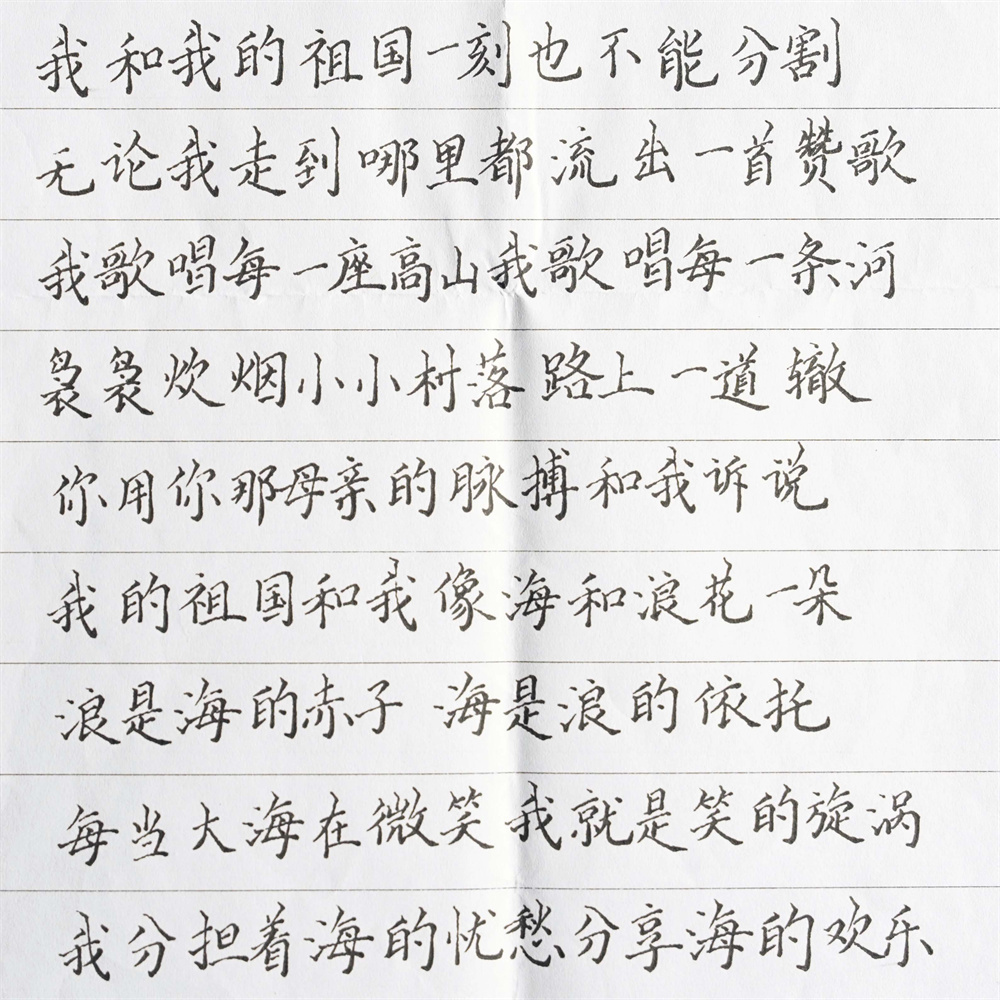 我和我的祖国一刻也不能分割
无论我走到哪里都流出一首赞歌
我歌唱每一座高山我歌唱每一条河
袅袅炊烟小小村落路上一道辙
你用你那母亲的脉搏和我诉说
我的祖国和我像海和浪花一朵
浪是海的赤子 海是浪的依托
每当大海在微笑我就是笑的旋涡
我分担着海的忧愁分享海的欢乐